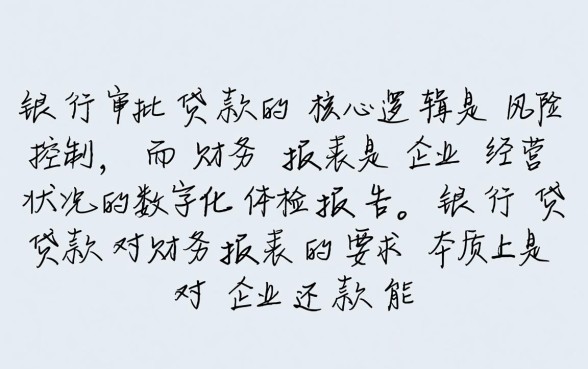 银行审批贷款的核心逻辑是风险
控制，而财务报表是企业经营
状况的数字化体检报告。银行贷
贷款对财务报表的要求本质上是
对企业还款能